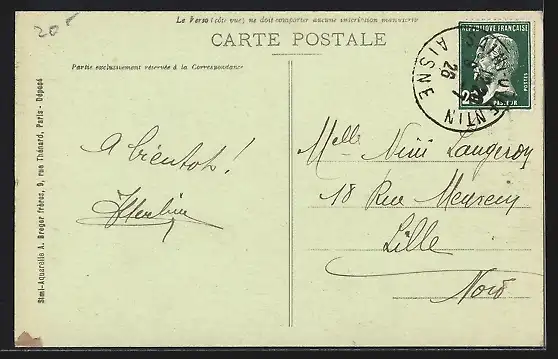 20
Le Verso (côté vue) ne doit comporter aucune inscription manuscrite
CARTE POSTALE
Partie exclusivement réservée à la Correspondance
RÉPUBLIQUE FRANÇAISE
POSTES
PASTEUR
QUENTIN
26
AISNE
A bientôt!
Melle Nini Langeron
18 Rue
Lille
Nord
Simi-Aquarelle A. Breger frères, 9, rue Thénard, Paris - Déposé